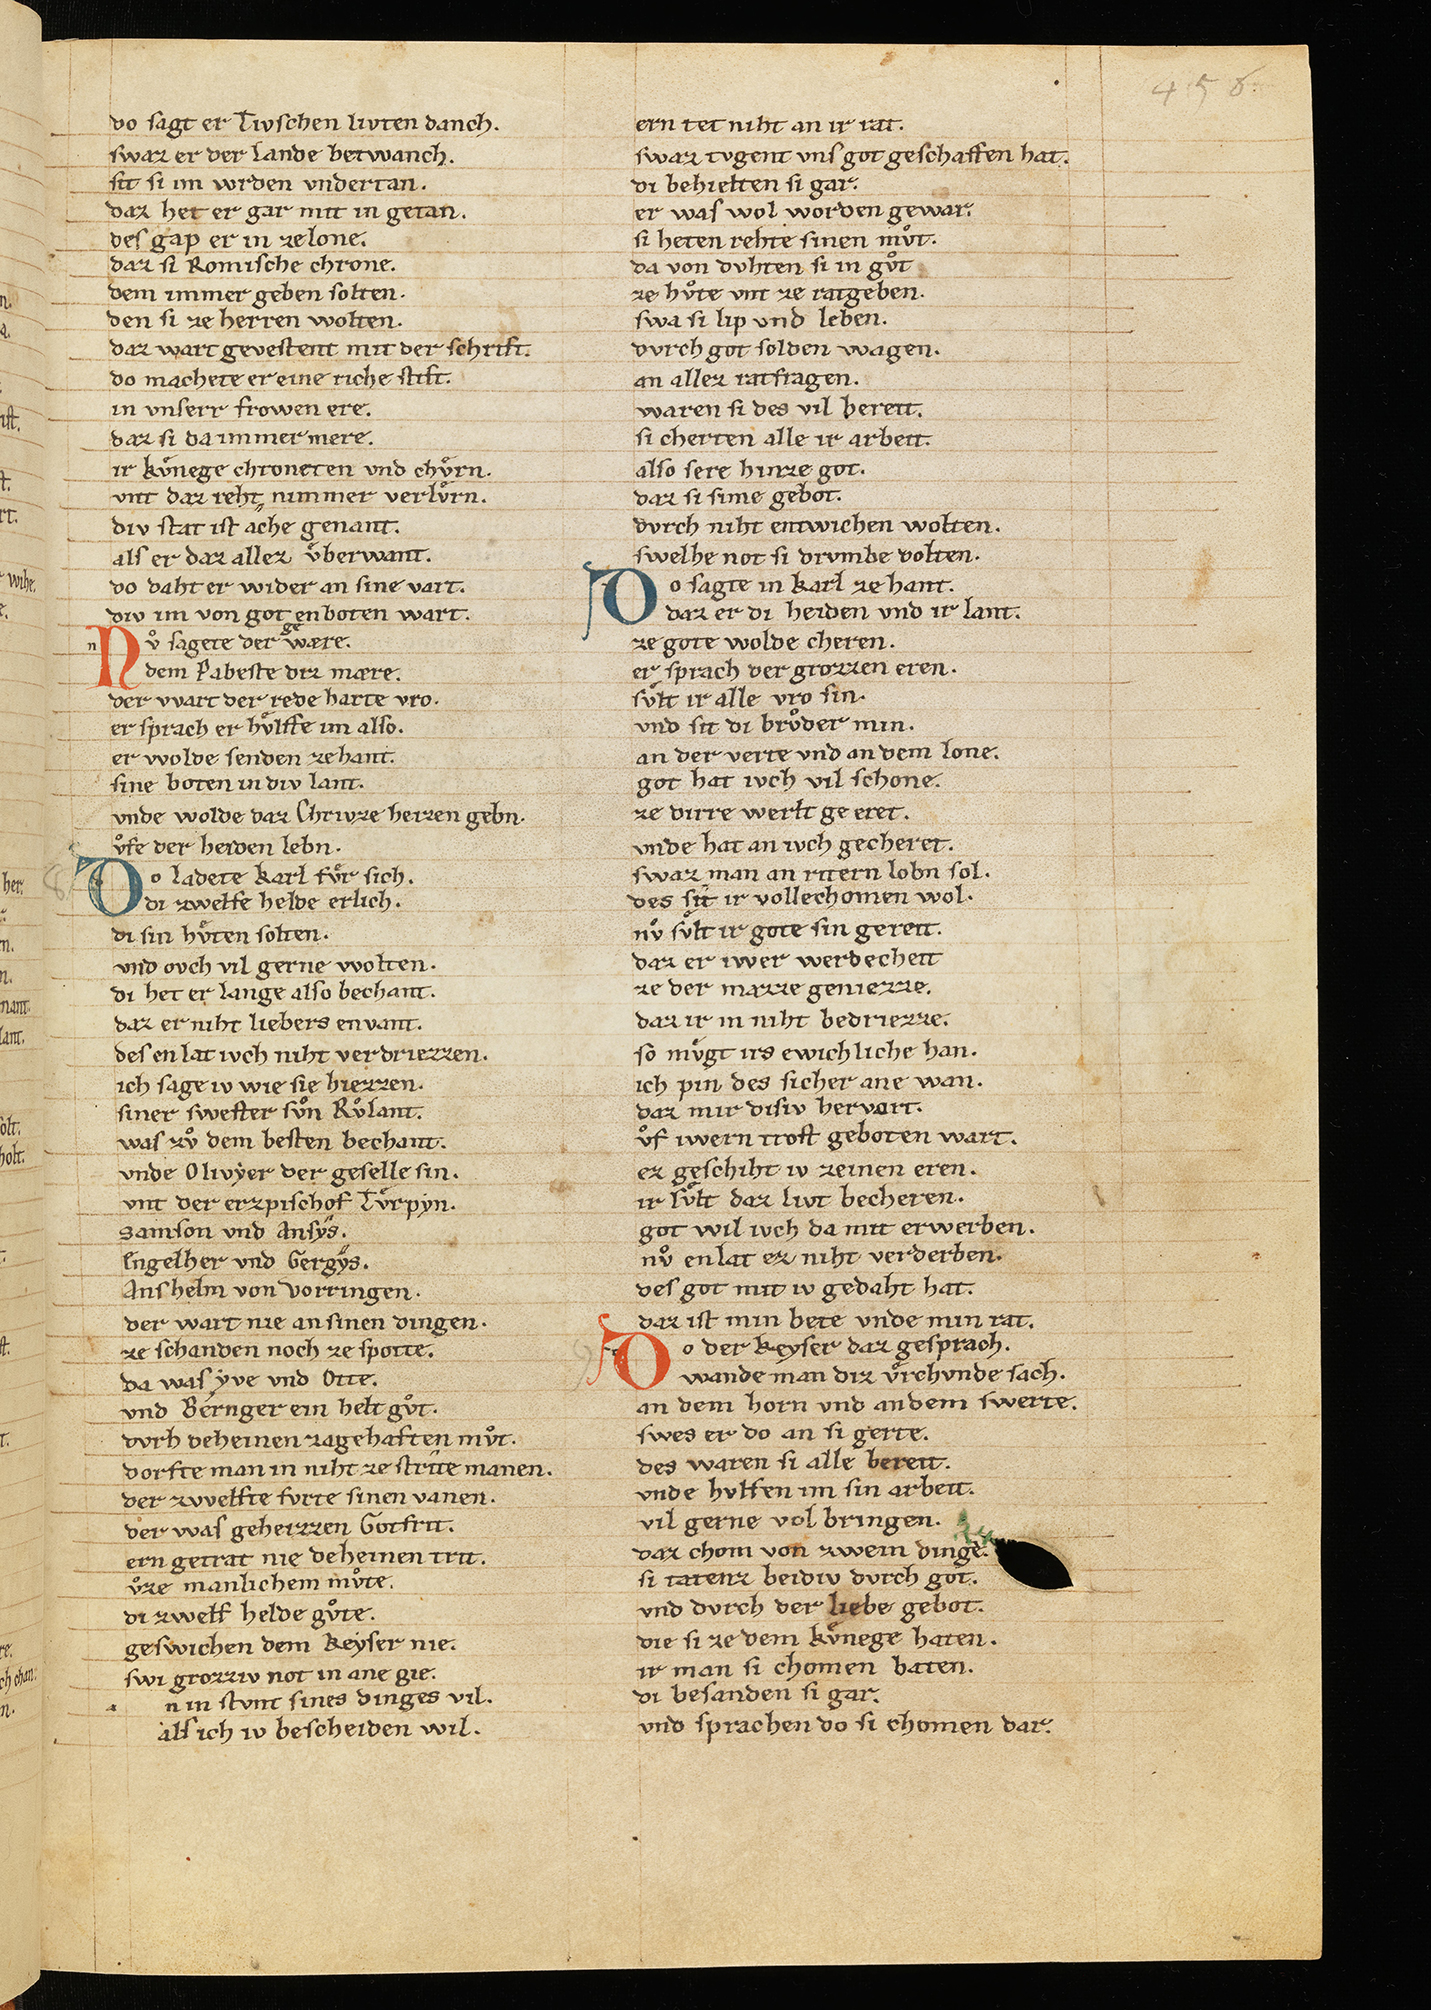 458
do sagt er Tivschen livten danch.
swaz er der lande betwanch.
sit si im wrden vndertan.
daz het er gar mit in getan.
des gap er in ze lone.
daz si Romische chrone.
dem immer geben solten.
den si ze herren wolten.
daz wart gevestent mit der schrift.
do machete er eine riche stift.
in vnserr frowen ere.
daz si da immer mere.
ir kvͤnege chroneten vnd chvͤrn.
vnt daz reht nimmer verlvͤrn.
div stat ist ache genant.
als er daz allez vͤberwant.
do daht er wider an sine vart.
div im von got enboten wart.
Nv̊ sagete der gewære.
dem Pabeste diz mære.
der wart der rede harte vro.
er sprach er hvͤlffe im also.
er wolde senden zehant.
sine boten in div lant.
vnde wolde daz Chrivze herzen gebn.
v̊fe der heiden lebn.
Do ladete karl fvͤr sich.
di zwelfe helde erlich.
di sin hvͤten solten.
vnd ovch vil gerne wolten.
di het er lange also bechant.
daz er niht liebers envant.
des en lat ivch niht verdriezzen.
ich sage iv wie sie hiezzen.
siner swester sv̊n Rv̊lant.
was zv̊ dem besten bechant.
vnde Olivẏer der geselle sin.
vnt der erzpischof Tvͤrpyn.
Samson vnd Ansẏs.
Engelher vnd Gergẏs.
Anshelm von Vorringen.
der wart nie an sinen dingen.
ze schanden noch ze spotte.
da was ẏve vnd Otte.
vnd Bernger ein helt gv̊t.
dvrh deheinen zagehaften mv̊t.
dorfte man in niht ze strîte manen.
der zwelfte fvrte sinen vanen.
der was geheizzen Gotfrit.
ern getrat nie deheinen trit.
v̊ze manlichem mv̊te.
di zwelf helde gv̊te.
geswichen dem keyser nie.
swi grozziv not in ane gie.
n in stvnt sines dinges vil.
als ich iv bescheiden wil.
ern tet niht an ir rat.
swaz tvgent vns got geschaffen hat.
di behielten si gar.
er was wol worden gewar.
si heten rehte sinen mv̊t.
da von dvhten si in gv̊t
ze hv̊te vnt ze ratgeben.
swa si lip vnd leben.
dvrch got solden wagen.
an allez ratfragen.
waren si des vil bereit.
si cherten alle ir arbeit.
also sere hinze got.
daz si sime gebot.
dvrch niht entwichen wolten.
swelhe not si drvmbe dolten.
Do sagte in karl ze hant.
daz er di heiden vnd ir lant.
ze gote wolde cheren.
er sprach der grozzen eren.
svͤlt ir alle vro sin.
vnd sit di brv̊der min.
an der verte vnd an dem lone.
got hat ivch vil schone.
ze dirre werlt ge eret.
vnde hat an ivch gecheret.
swaz man an ritern lobn sol.
des sît ir vollechomen wol.
nv̊ svͤlt ir gote sin gereit.
daz er iwer werdecheit
ze der mazze geniezze.
daz ir in niht bedriezze.
so mvͤgt irs ewichliche han.
ich pin des sicher ane wan.
daz mir disiv hervart.
v̊f iwern trost geboten wart.
ez geschiht iv zeinen eren.
ir svͤlt daz livt becheren.
got wil ivch da mit erwerben.
nv̊ en lat ez niht verderben.
des got mit iv gedaht hat.
daz ist min bete vnde min rat.
Do der keyser daz gesprach.
wande man diz vͤrchvnde sach.
an dem horn vnd an dem swerte.
swes er do an si gerte.
des waren si alle bereit.
vnde hvlfen im sin arbeit.
vil gerne vol bringen.
daz chom von zwein dinge.
si tatenz beidiv dvrch got.
vnd dvrch der liebe gebot.
die si ze dem kvͤnege haten.
ir man si chomen baten.
di besanden si gar.
vnd sprachen do si chomen dar.